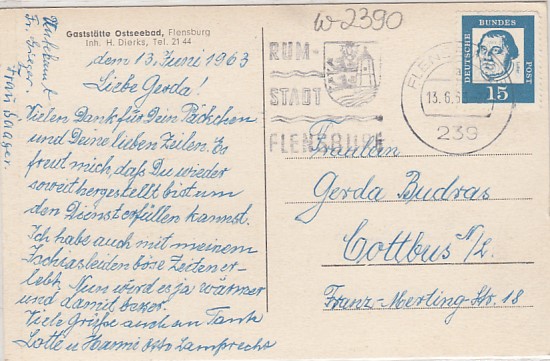 Gaststätte Ostseebad, Flensburg
Inh. H. Dierks, Tel. 21 44
W-2390
dem 13. Juni 1963
Liebe Gerda!
Vielen Dank für Dein Päckchen
und Deine lieben Zeilen. Es
freut mich, daß Du wieder
soweit hergestellt bist um
den Dienst erfüllen kannst.
Ich habe auch mit meinem
Ischiasleiden böse Zeiten er-
lebt. Nun wird es ja wärmer
und damit besser.
Viele Grüße auch an Tante
Lotte u Hanni Lamprecht
Frau
RUM-
STADT
FLENSBURG
FLENSBURG
13.6.6
239
DEUTSCHE
BUNDES
POST
15
Fräulein
Gerda Budras
Cottbus N/L.
Franz-Merting-Str. 18